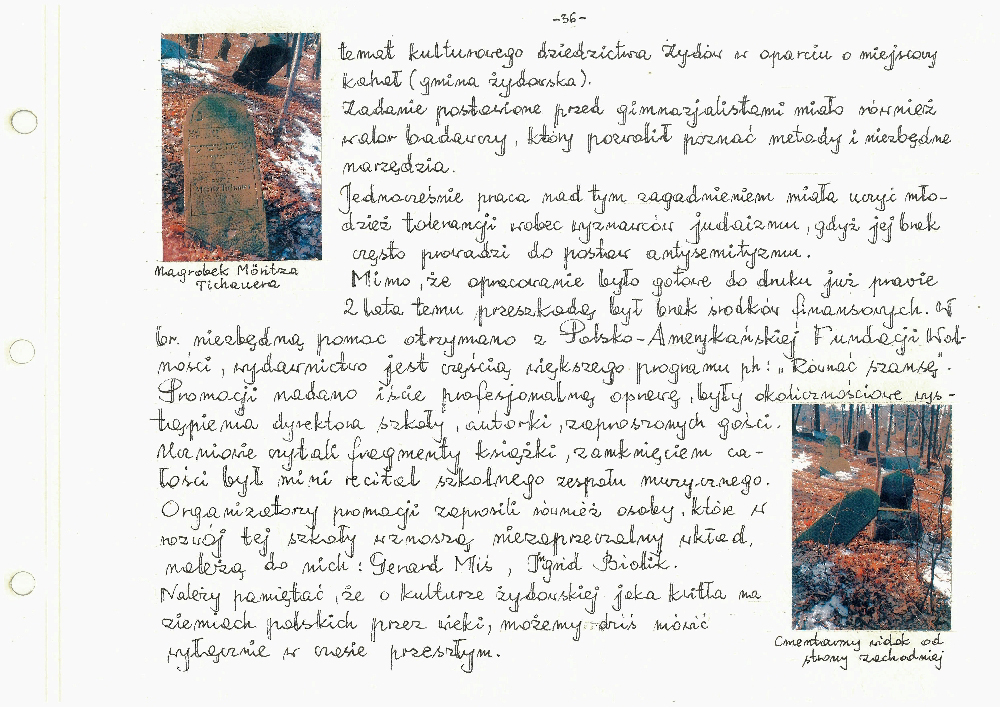 -36-
temat kulturowego dziedzictwa Żydów w oparciu o miejscowy
kahał (gmina żydowska).
Zadanie postawione przed gimnazjalistami miało również
walor badawczy, który pozwolił poznać metody i niezbędne
narzędzia.
Jednocześnie praca nad tym zagadnieniem miała uczyć mło-
dzież tolerancji wobec wyznawców judaizmu, gdyż jej brak
często prowadzi do postaw antysemityzmu.
Mimo, że opracowanie było gotowe do druku już prawie
2 lata temu przeszkodą był brak środków finansowych. W
br. niezbędną pomoc otrzymano z Polsko-Amerykańskiej Fundacji Wol-
ności, wydawnictwo jest częścią większego programu ph: „Równać szansę".
Promocji nadano iście profesjonalną oprawę, były okolicznościowe wys-
tąpienia dyrektora szkoły, autorki, zaproszonych gości.
Uczniowie czytali fragmenty książki, zamknięciem ca-
łości był mini recital szkolnego zespołu muzycznego.
Organizatorzy promocji zaprosili również osoby, które w
rozwój tej szkoły wznoszą niezaprzeczalny wkład,
należą do nich: Gerard Miś, Ingrid Biolik.
Należy pamiętać, że o kulturze żydowskiej jaka kwitła na
ziemiach polskich przez wieki, możemy dziś mówić
wyłącznie w czasie przeszłym.
Nagrobek Möritza
Tichauera
Cmentarny widok od
strony zachodniej